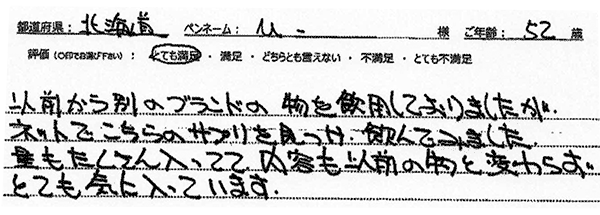 都道府県: 北海道 ペンネーム: U - 様 ご年齢: 52 歳
評価 (○印でお選び下さい) : とても満足 ・ 満足 ・ どちらとも言えない ・ 不満足 ・ とても不満足
以前から別のブランドの物を飲用しておりましたが
ネットでこちらのサプリを見つけ飲んでみました。
量もたくさん入ってて内容も以前の物と変わらず
とても気に入っています。